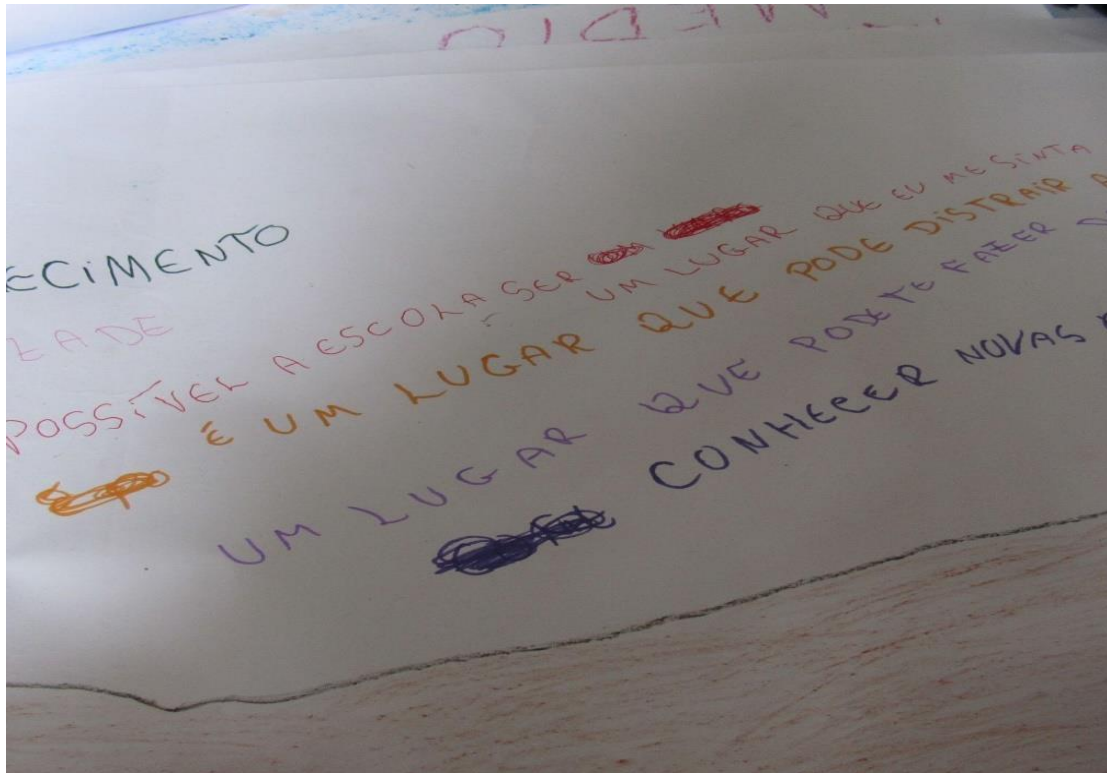 ECIMENTO
ZADE
POSSÍVEL A ESCOLA SER UM LUGAR QUE EU ME SINTA
É UM LUGAR QUE PODE DISTRAIR A
UM LUGAR QUE PODE TE FAZER
CONHECER NOVAS